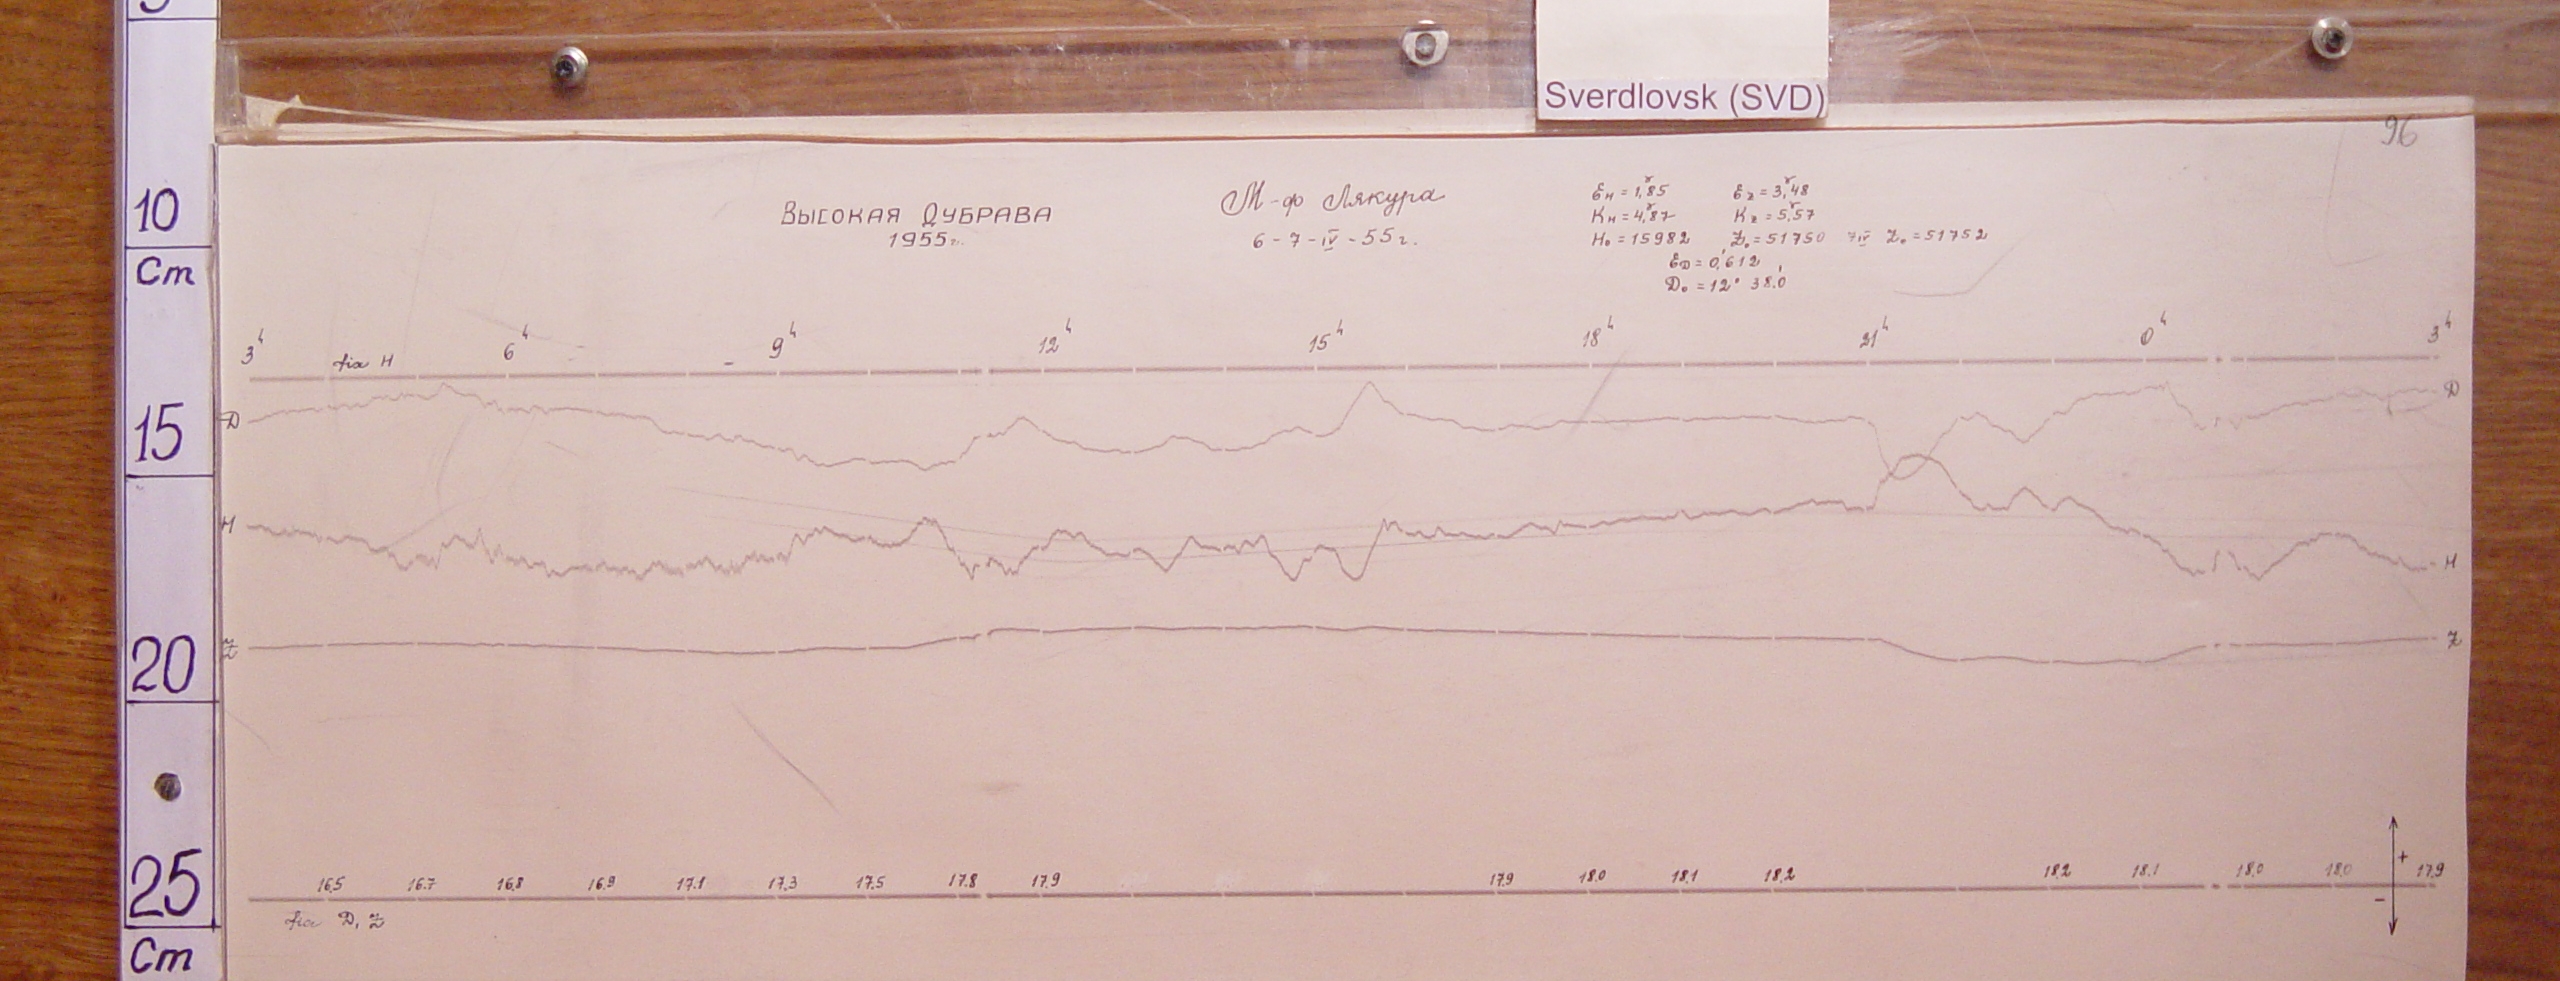 Sverdlovsk (SVD)
96
10
Cm
15
20
25
Cm
Высокая Дубрава
1955г.
М-ф Лякура
6-7-IV-55г.
εH = 1,γ85 εZ = 3,γ48
KH = 4,γ87 KZ = 5,γ57
H₀ = 15982 Z₀ = 51750 7IV Z₀ = 51752
εD = 0,'612
D₀ = 12° 38,'0
3ч 6ч 9ч 12ч 15ч 18ч 21ч 0ч 3ч
fix H
D D
H H
Z Z
16.5 16.7 16.8 16.9 17.1 17.3 17.5 17.8 17.9 17.9 18.0 18.1 18.2 18.2 18.1 18.0 18.0 17.9
+
−
fix D, Z